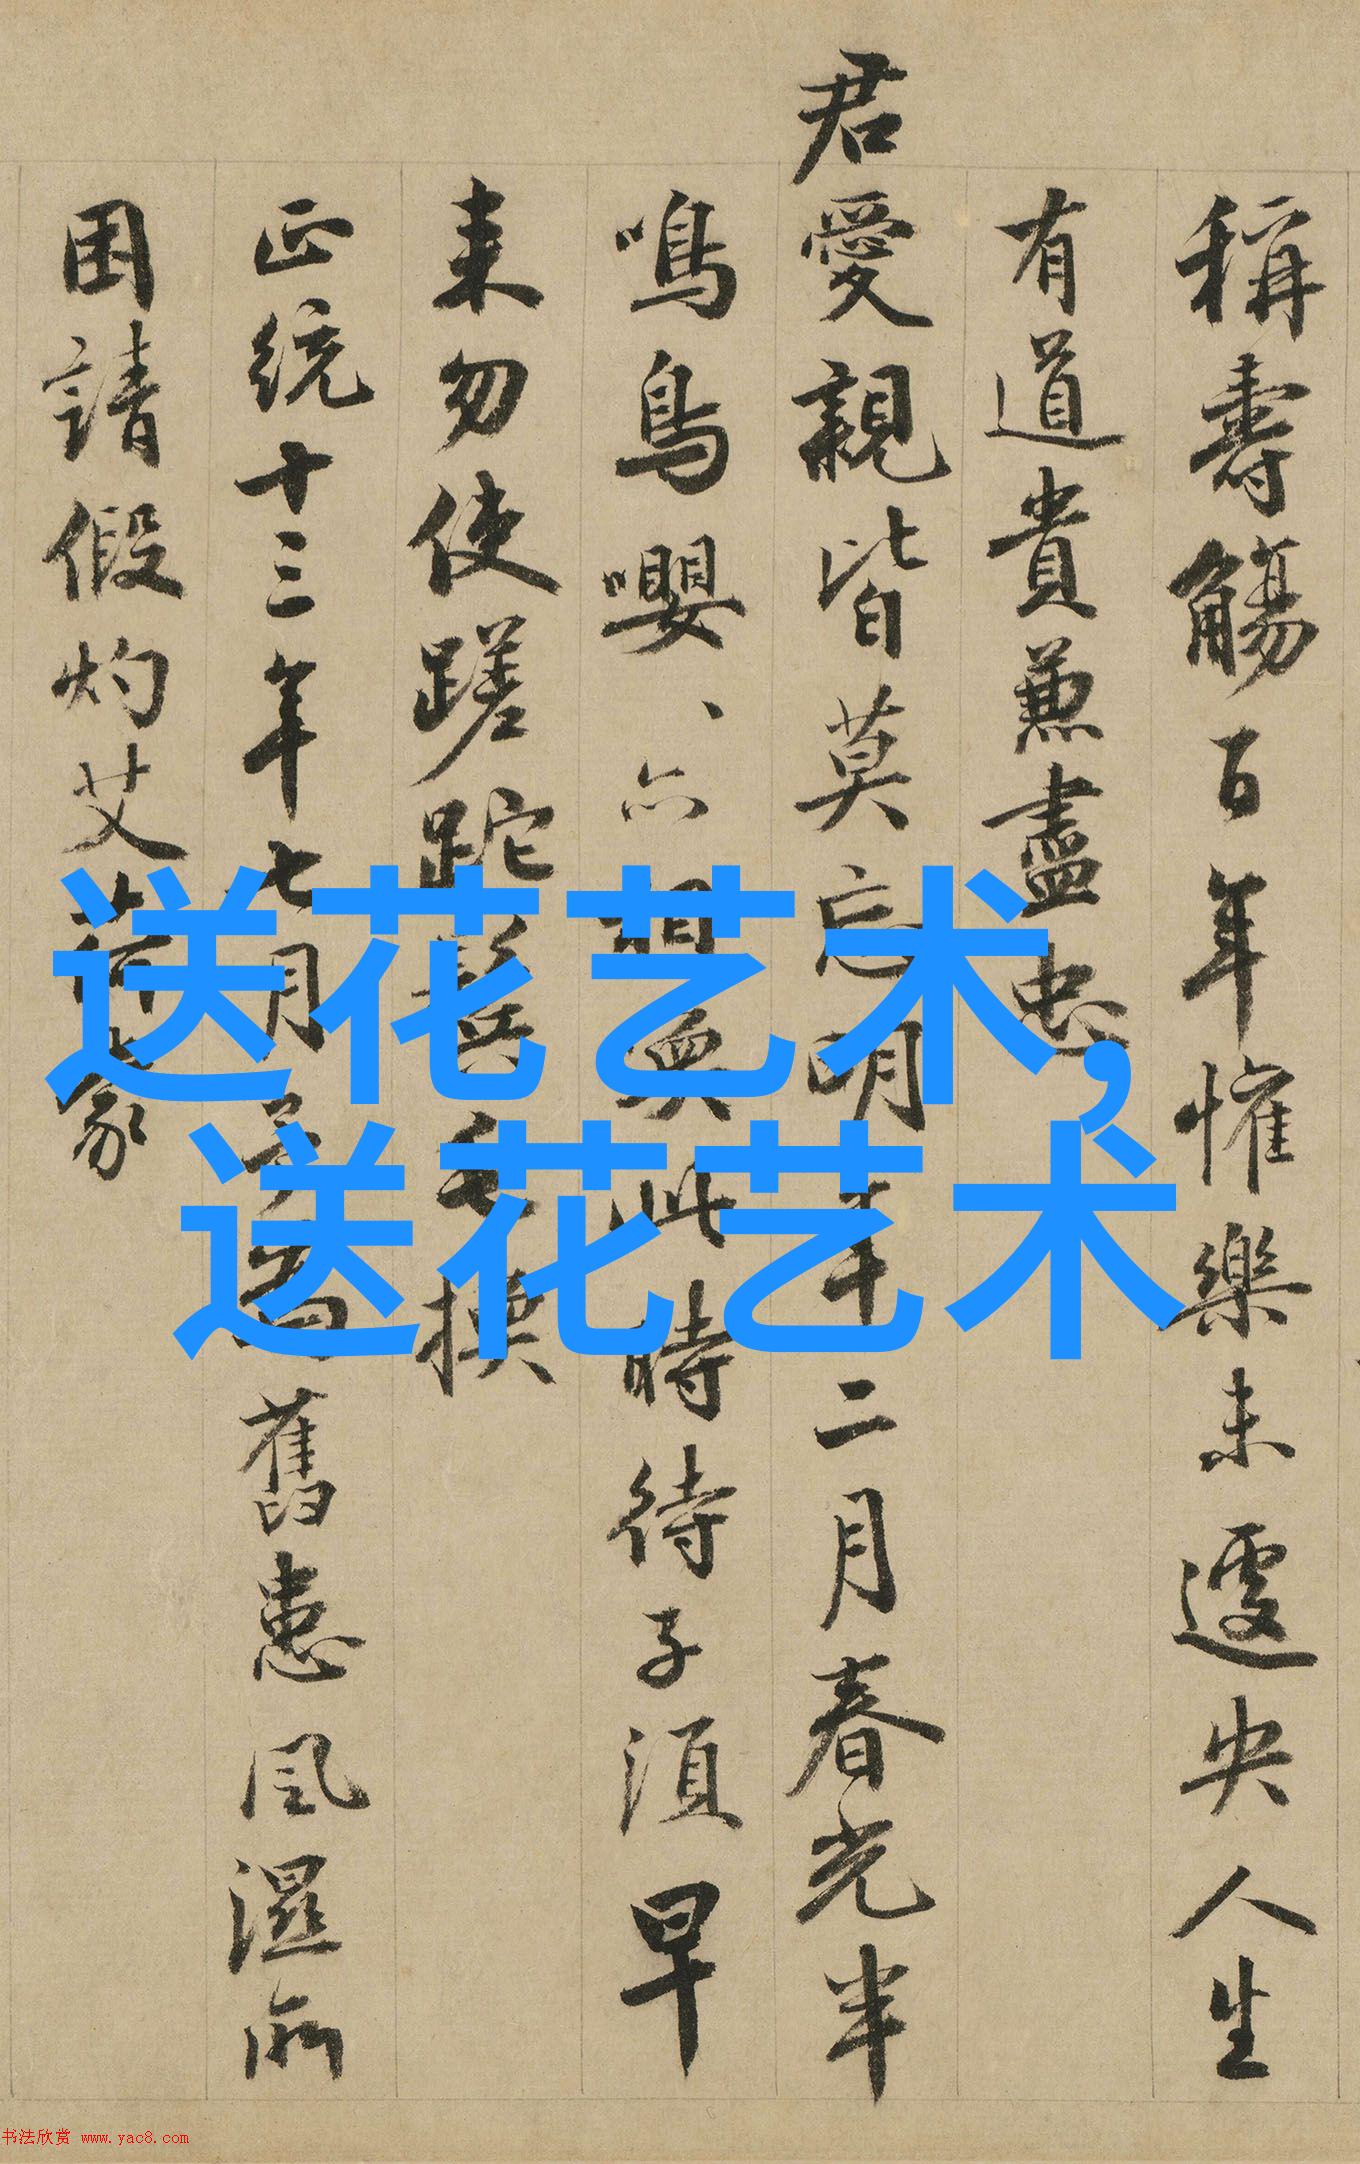 稱壽觴百年懽樂未遽央人生
有道貴兼盡忠
君愛親皆莫忘明年二月春光半
鳴鳥嚶、亦相與此時待子須早
来勿使蹉跎鬓毛換
正統十三年七月予為舊患風濕所
困請假灼艾
送花艺术,
送花艺术
书法欣赏 www.yac8.com